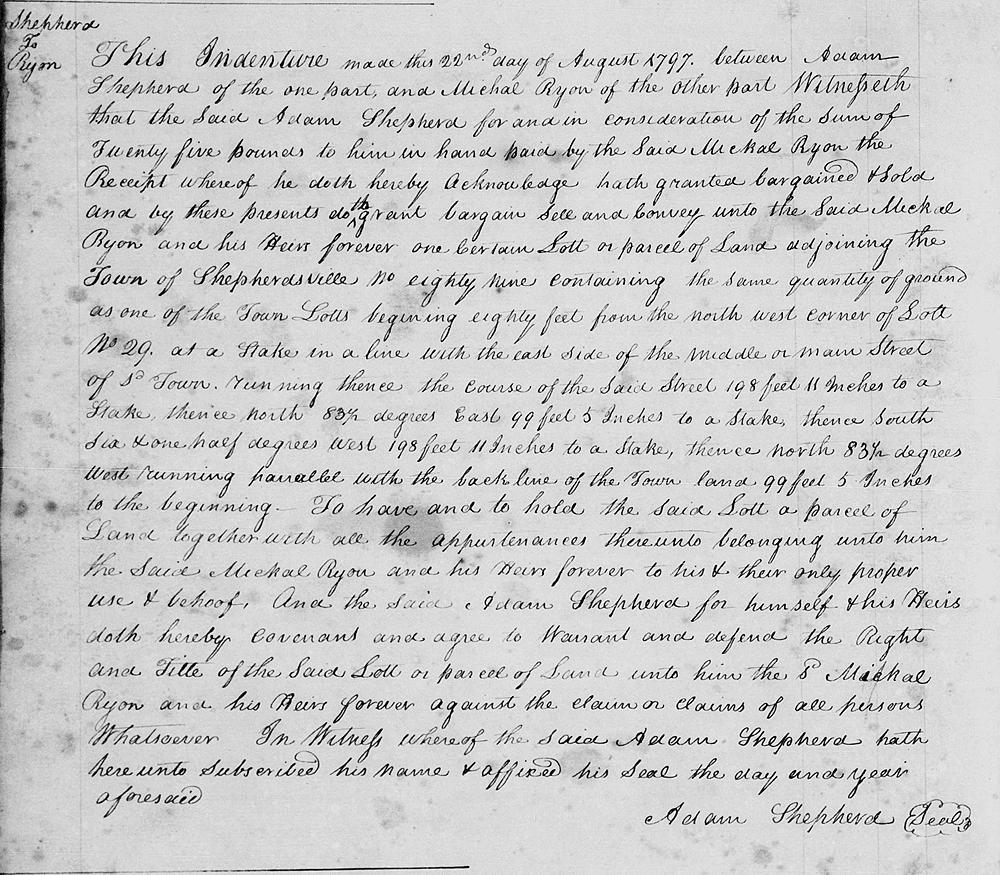 Shepherd
To
Ryon
This Indenture made this 22nd day of August 1797. between Adam
Shepherd of the one part, and Michal Ryon of the other part Witnesseth
that the Said Adam Shepherd for and in consideration of the Sum of
Twenty five pounds to him in hand paid by the Said Mickal Ryon the
Receipt whereof he doth hereby Acknowledge hath granted bargained & Sold
and by these presents doth grant bargain Sell and Convey unto the Said Mickal
Ryon and his Heirs forever one Certain Lott or parcel of Land adjoining the
Town of Shepherdsville No eighty Nine containing the same quantity of ground
as one of the Town Lotts begining eighty feet from the north west corner of Lott
No 29. at a Stake in a line with the east side of the middle or main Street
of sd Town. running thence the course of the Said Street 198 feet 11 Inches to a
Stake, thence north 83½ degrees East 99 feet 5 Inches to a Stake, thence South
Six & one half degrees West 198 feet 11 Inches to a Stake, thence north 83½ degrees
West running parallel with the back line of the Town land 99 feet 5 Inches
to the beginning - To have and to hold the Said Lott a parcel of
Land together with all the appurtenances thereunto belonging unto him
the Said Mickal Ryon and his Heirs forever to his & their only proper
use & behoof, And the Said Adam Shepherd for himself & his Heirs
doth hereby Covenant and agree to Warrant and defend the Right
and Title of the Said Lott or parcel of Land unto him the Sd Mickal
Ryon and his Heirs forever against the claim or claims of all persons
Whatsoever In Witness whereof the Said Adam Shepherd hath
here unto Subscribed his name & affixed his Seal the day and year
aforesaid
Adam Shepherd Seal